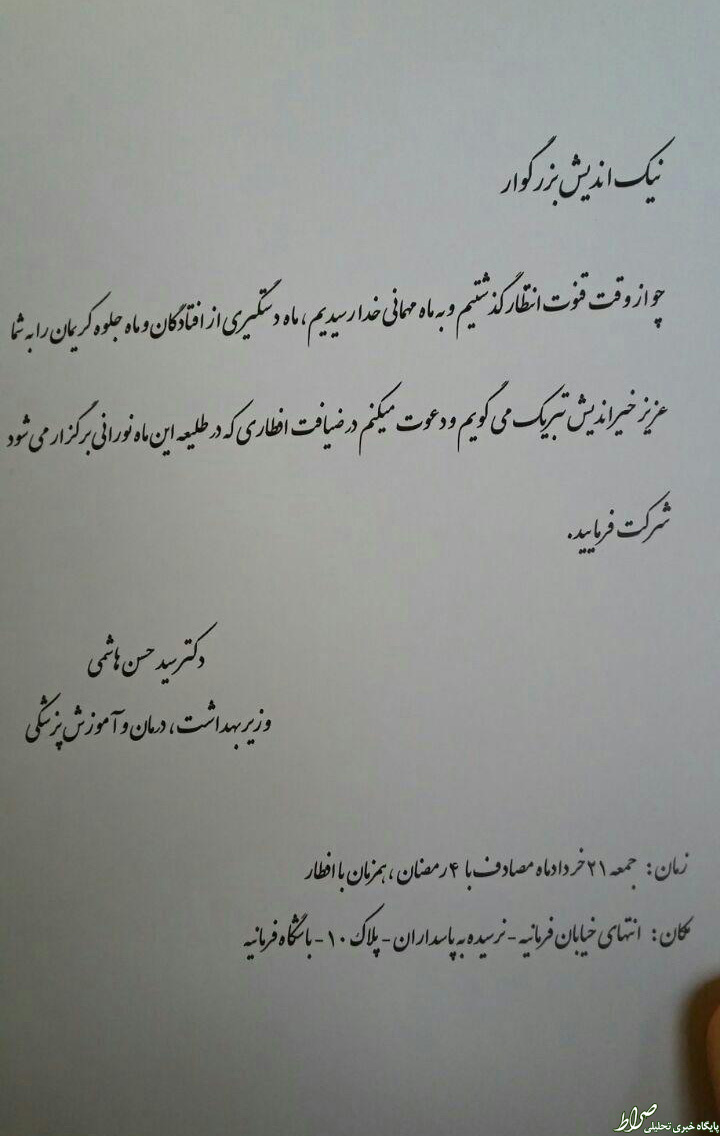 نیک اندیش بزرگوار
چو از وقت قنوت انتظار گذشتیم و به ماه مهمانی خدا رسیدیم، ماه دستگیری از افتادگان و ماه جلوه کریمان را به شما
عزیز خیراندیش تبریک می گویم و دعوت میکنم در ضیافت افطاری که در طلیعه این ماه نورانی برگزار می شود
شرکت فرمایید.
دکتر سید حسن هاشمی
وزیر بهداشت، درمان و آموزش پزشکی
زمان: جمعه ۲۱ خردادماه مصادف با ۴ رمضان، همزمان با افطار
مکان: انتهای خیابان فرمانیه - نرسیده به پاسداران - پلاک ۱۰ - باشگاه فرمانیه
صراط
پایگاه خبری تحلیلی